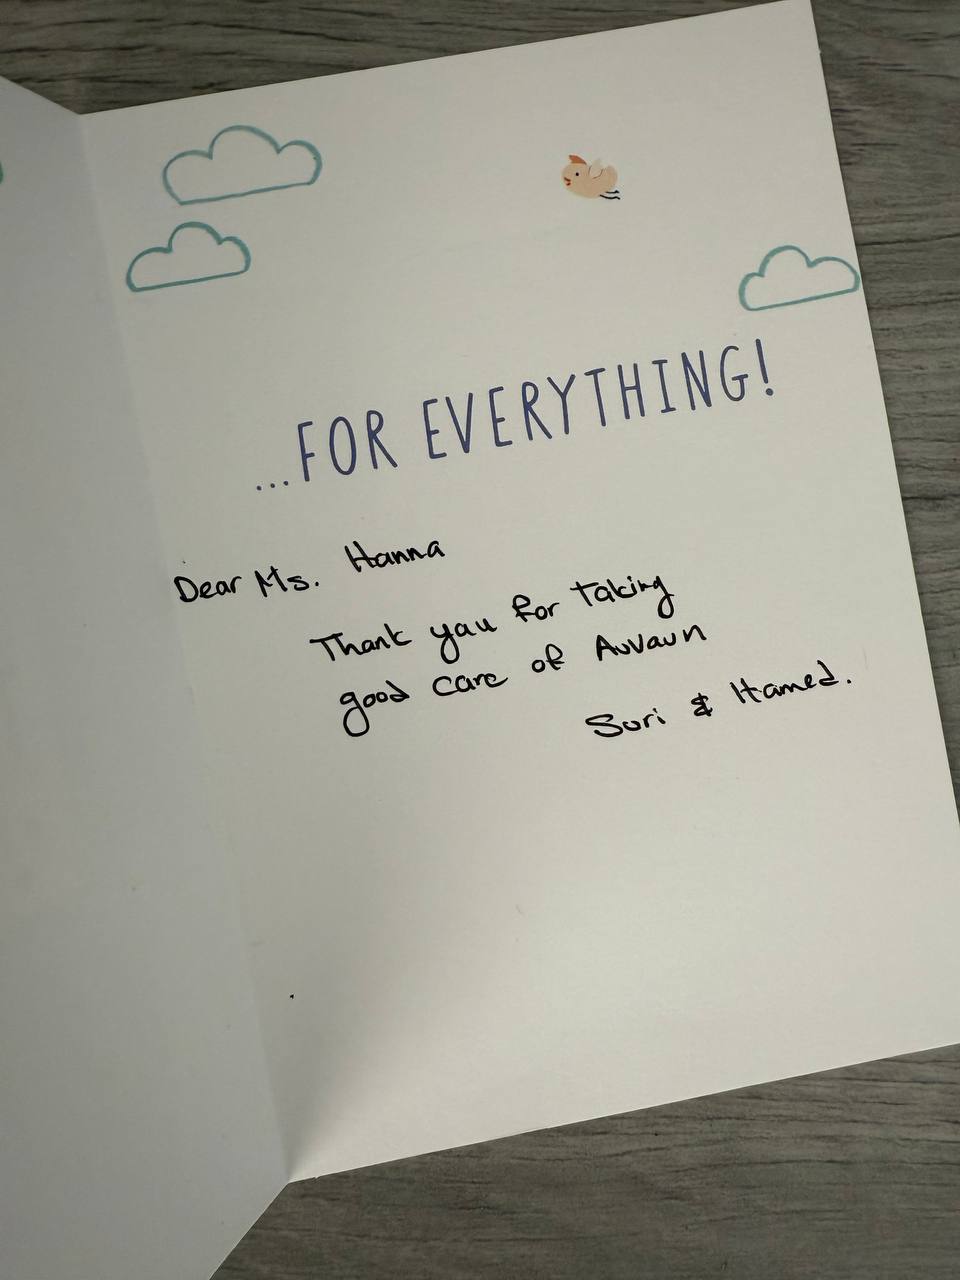 ...FOR EVERYTHING!
Dear Ms. Hanna
Thank you for taking
good care of Auvaun
Suri & Hamed.